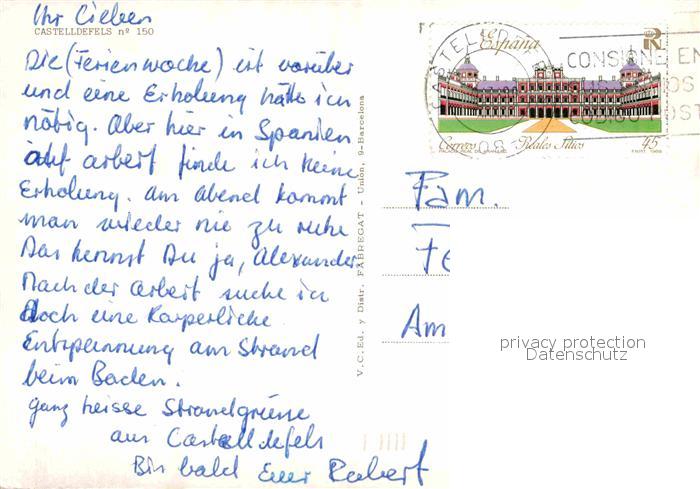 Ihr Lieben
CASTELLDEFELS nº 150
Die (Ferienwoche) ist vorüber
und eine Erholung hätte ich
nötig. Aber hier in Spanien
auf arbeit finde ich keine
Erholung. am Abend kommt
man wieder nie zu ruhe
Das kennst Du ja, Alexander
Nach der arbeit suche ich
doch eine Körperliche
Entspannung am Strand
beim Baden.
ganz heisse Strandgrüsse
aus Castelldefels
Bis bald Euer Robert
V. C. Ed. y Distr. FABREGAT - Unión, 9-Barcelona
España
CASTELLD
CONSIGNE EN
OS
POST
08
Correos Reales Sitios 45
Fam.
Fe
Am
privacy protection
Datenschutz